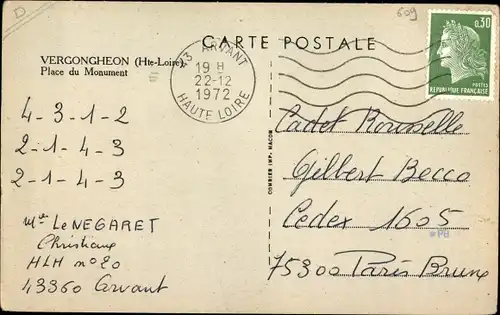 D
609
CARTE POSTALE
VERGONGHEON (Hte-Loire)
Place du Monument
43 ARVANT
19 H
22-12
1972
HAUTE LOIRE
0,30
POSTES
REPUBLIQUE FRANÇAISE
4-3-1-2
2-1-4-3
2-1-4-3
Mlle Le NEGARET
Christiane
HLM n° 20
43360 Arvant
COMBIER IMP. MACON
Cadet Rousselle
Gilbert Becco
Cedex 1605
PB
75300 Paris Brune